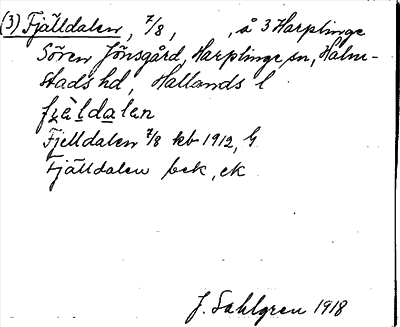 (3) Fjälldalen, 7/8, , å 3 Harplinge
Sören Jönsgård, Harplinge sn, Halm-
stads hd, Hallands l
fjä̀ldalen
Fjelldalen 7/8 kb 1912, G
Fjälldalen bek, ek
J. Sahlgren 1918